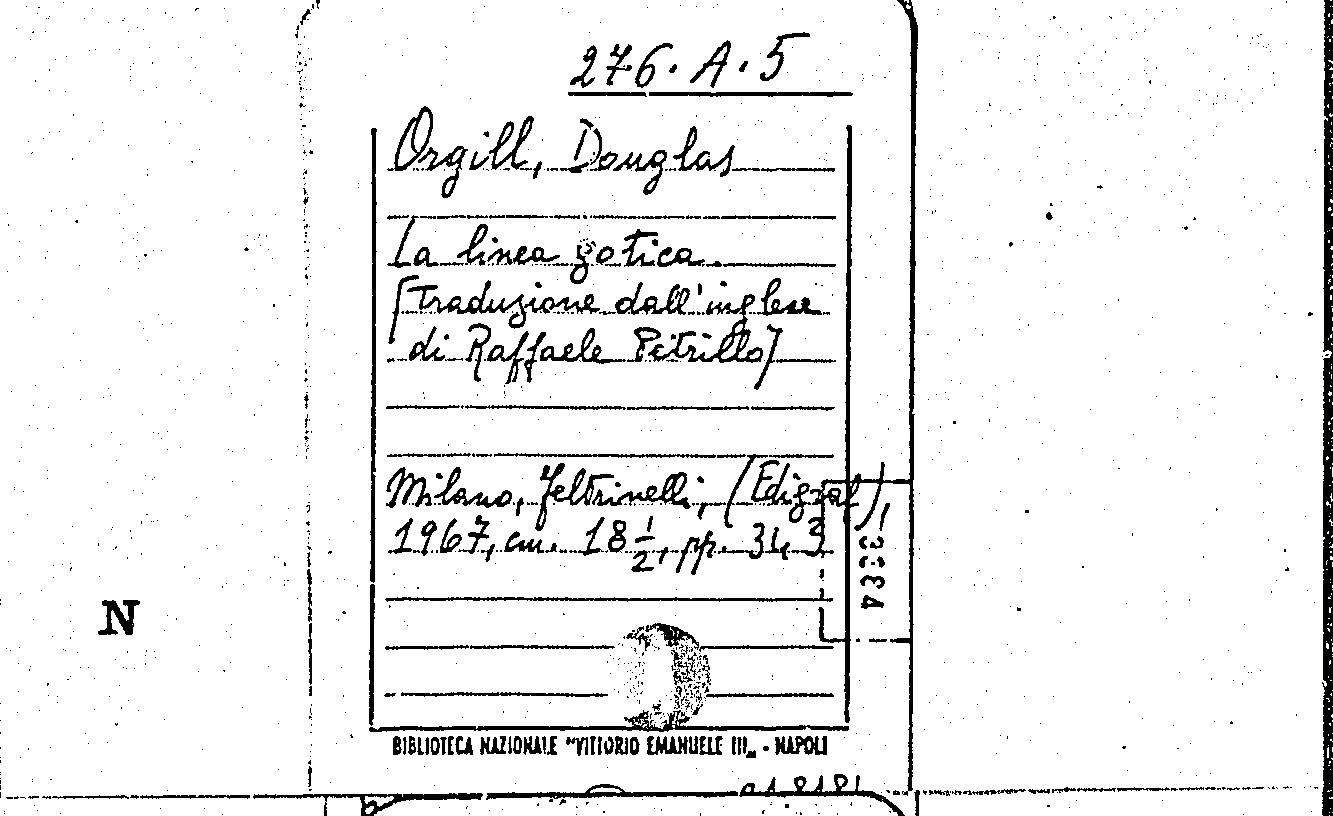 276.A.5
Orgill, Douglas
La linea gotica.
[Traduzione dall'inglese
di Raffaele Petrillo]
Milano, Feltrinelli, (Edigraf),
1967, cm. 18 1/2, pp. 343
N
BIBLIOTECA NAZIONALE "VITTORIO EMANUELE III„ - NAPOLI